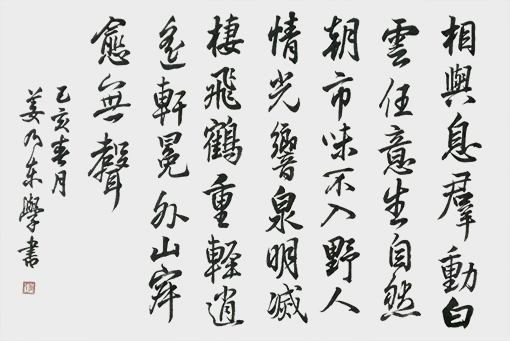 相與息羣動白
雲任意生自然
朝市味不入野人
情光響泉明滅
棲飛鶴重輕逍
遙軒冕外山
愈無聲
乙亥春月
姜乃東學書